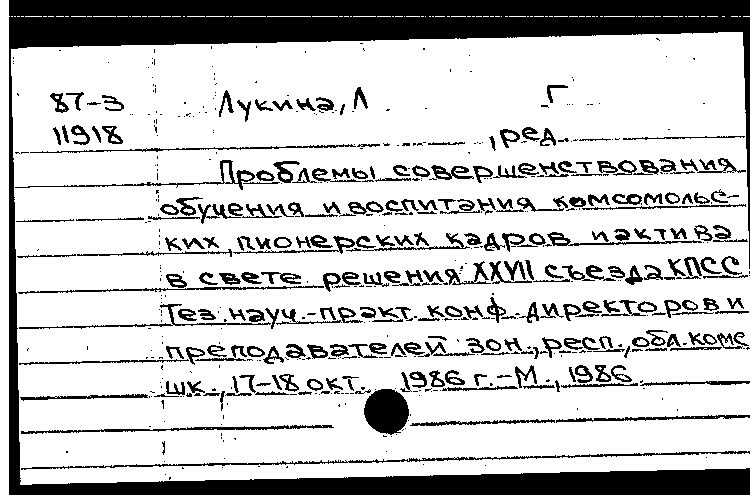 87-3 Лукина, Л Г
11918 , ред.
Проблемы совершенствования
обучения и воспитания комсомольс-
ких, пионерских кадров и актива
в свете решения XXVII съезда КПСС
Тез. науч.-практ. конф. директоров и
преподавателей зон., респ., обл. комс
шк., 17-18 окт. 1986 г. - М., 1986.